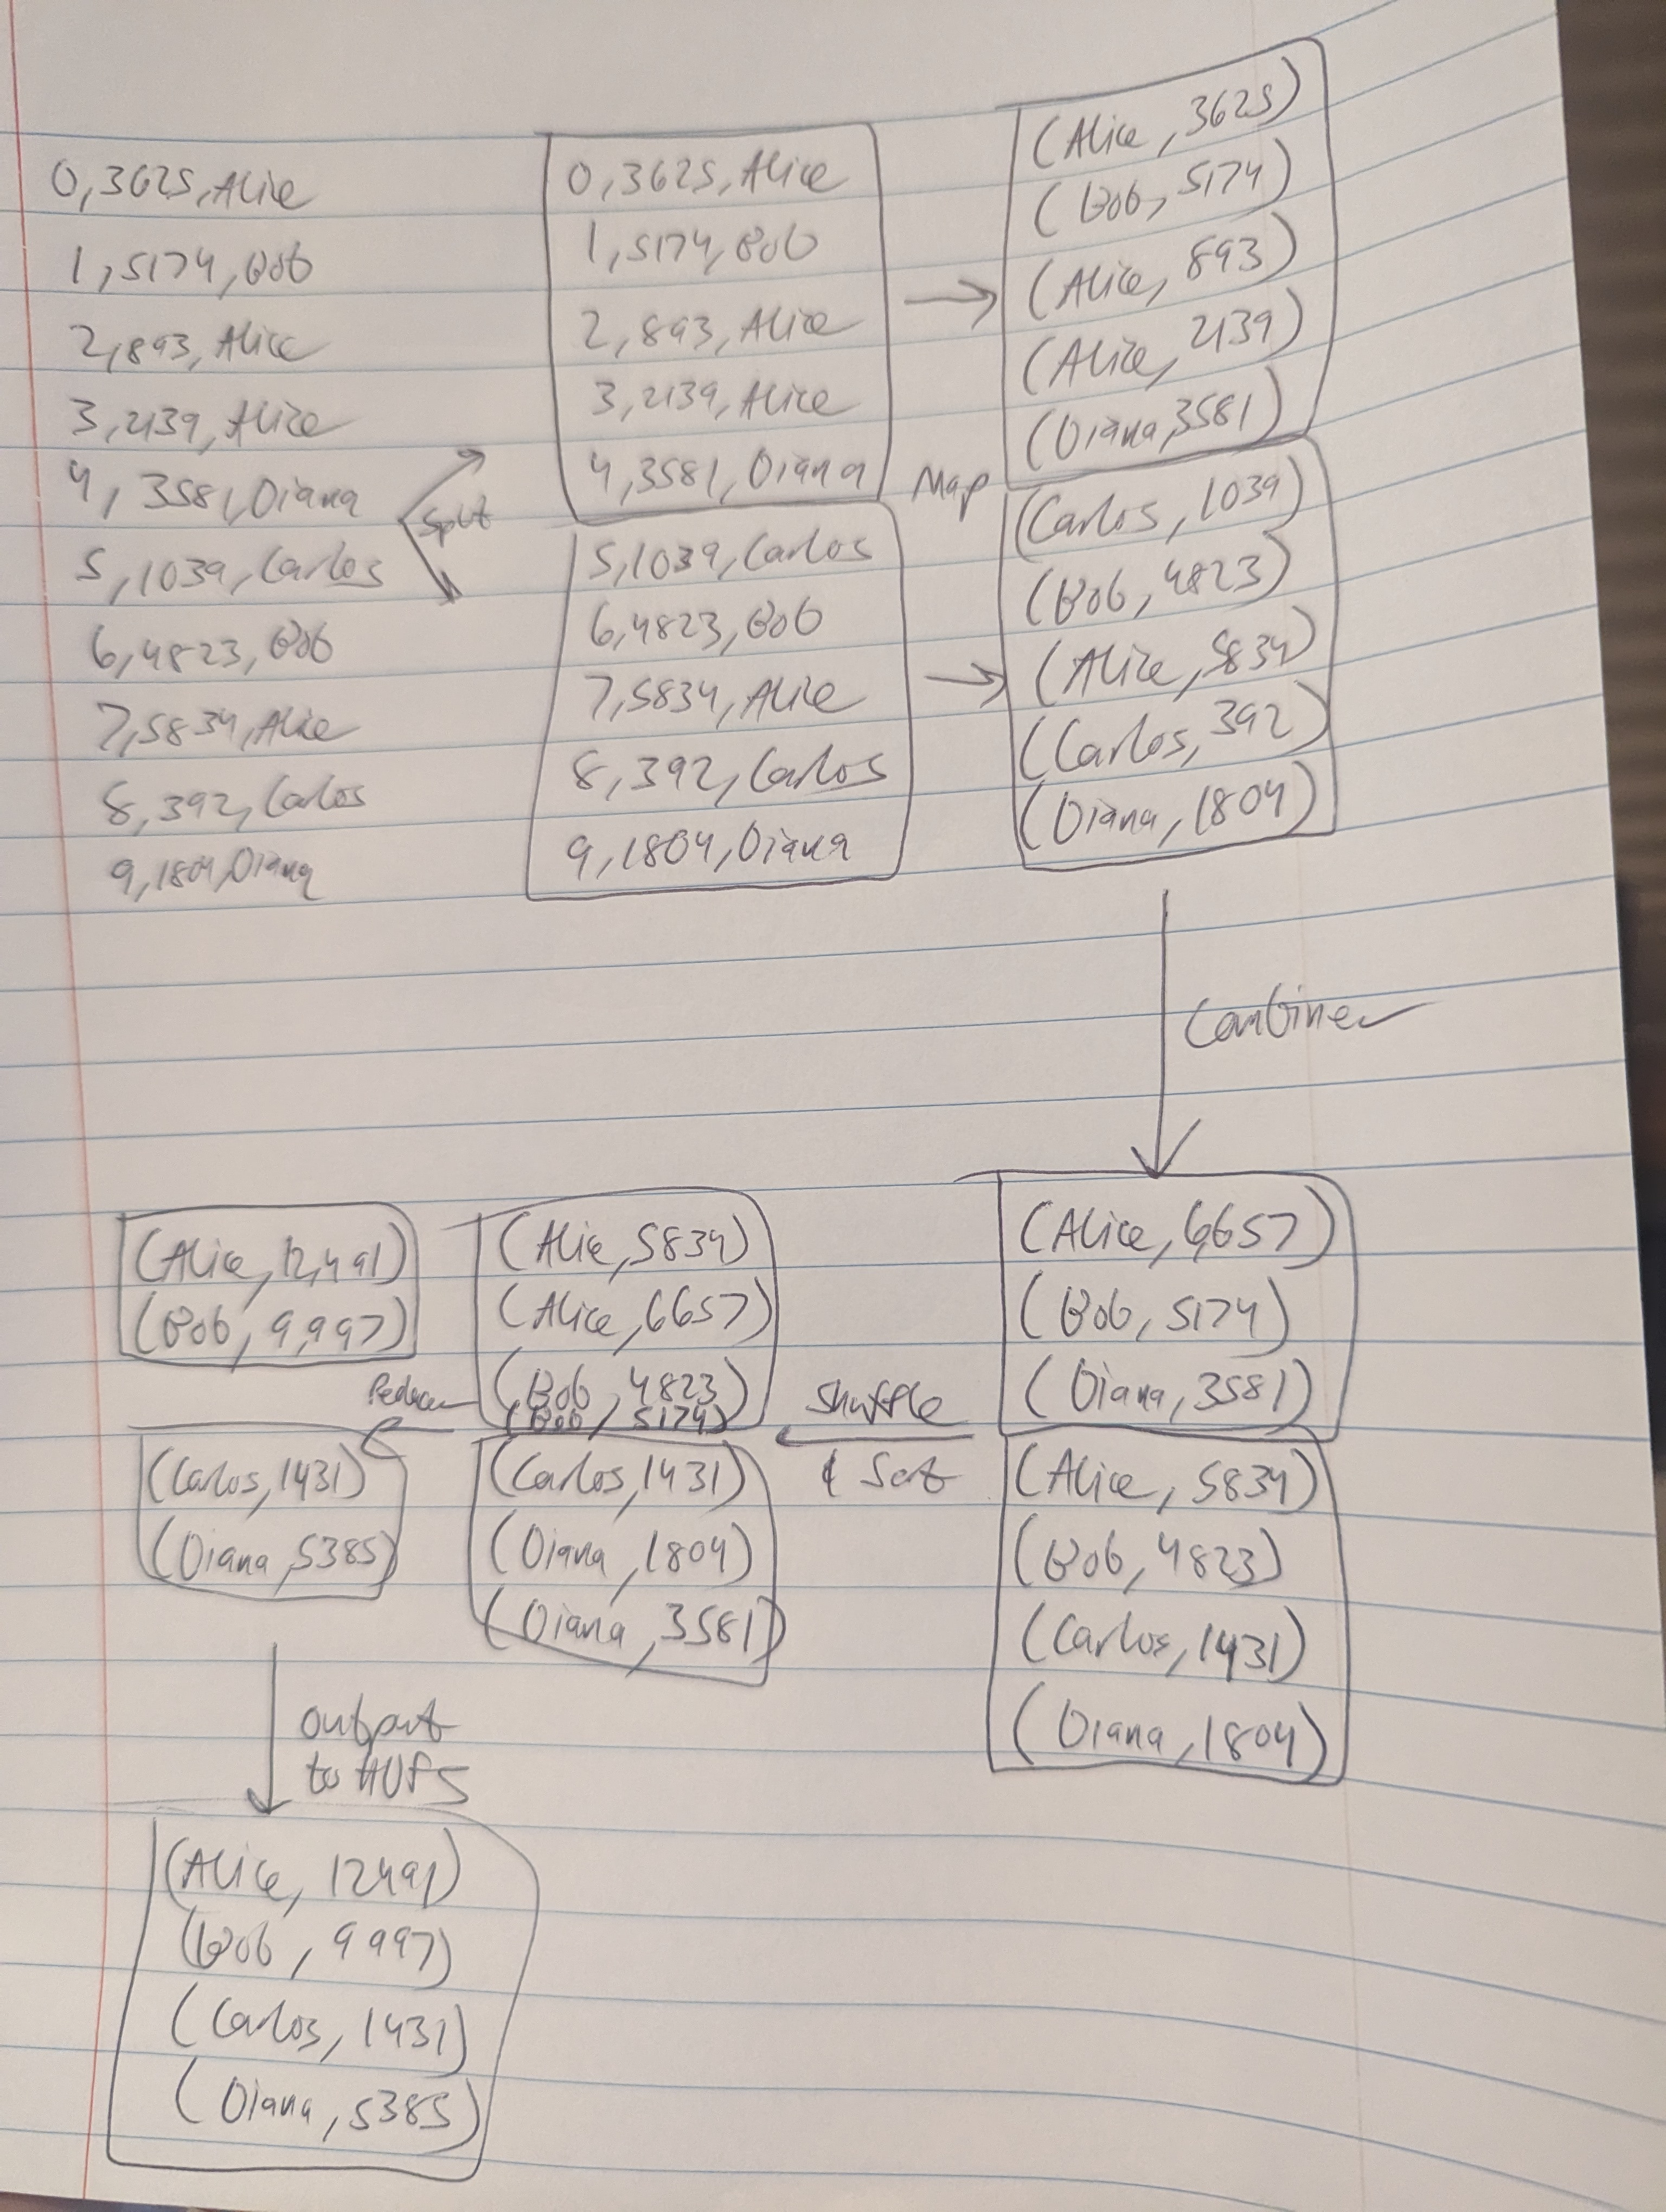 0,3625,Alice
1,5174,Bob
2,893,Alice
3,2139,Alice
4,3581,Diana
5,1039,Carlos
6,4823,Bob
7,5834,Alice
8,392,Carlos
9,1804,Diana
Split
0,3625,Alice
1,5174,Bob
2,893,Alice
3,2139,Alice
4,3581,Diana
5,1039,Carlos
6,4823,Bob
7,5834,Alice
8,392,Carlos
9,1804,Diana
Map
(Alice,3625)
(Bob,5174)
(Alice,893)
(Alice,2139)
(Diana,3581)
(Carlos,1039)
(Bob,4823)
(Alice,5834)
(Carlos,392)
(Diana,1804)
Combiner
(Alice,6,657)
(Bob,5174)
(Diana,3581)
(Alice,5834)
(Bob,4823)
(Carlos,1431)
(Diana,1804)
Shuffle
& Sort
(Alice,5834)
(Alice,6657)
(Bob,4823)
(Bob,5174)
(Carlos,1431)
(Diana,1804)
(Diana,3581)
Reducer
(Alice,12,491)
(Bob,9,997)
(Carlos,1431)
(Diana,5385)
output
to HDFS
(Alice,12491)
(Bob,9997)
(Carlos,1431)
(Diana,5385)